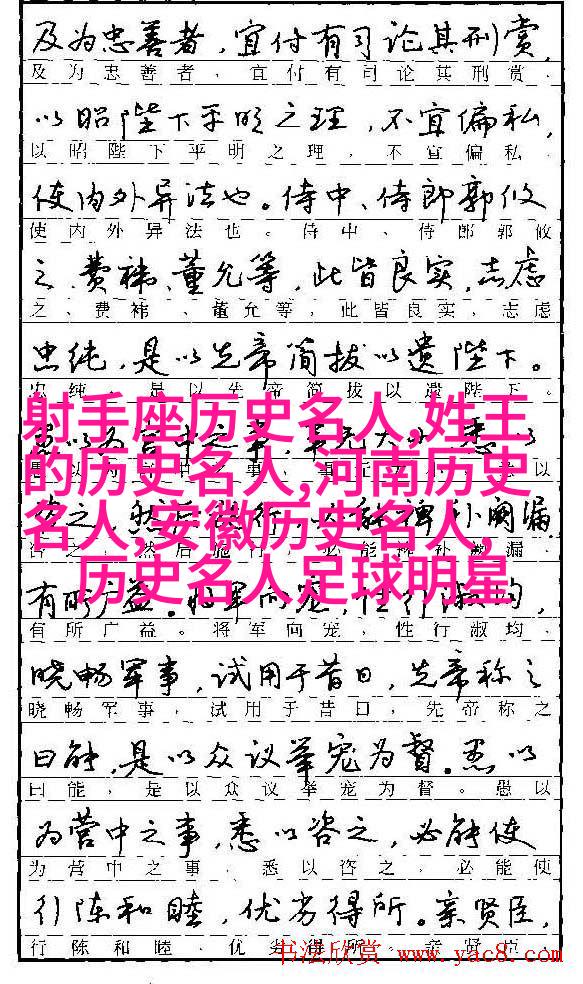 及为忠善者，宜付有司论其刑赏，
及为忠善者，宜付有司论其刑赏，
以昭陛下平明之理，不宜偏私，
以昭陛下平明之理，不宜偏私，
使内外异法也。侍中、侍郎郭攸
使内外异法也。侍中、侍郎郭攸
之、费祎、董允等，此皆良实，志虑
之、费祎、董允等，此皆良实，志虑
忠纯，是以先帝简拔以遗陛下。
忠纯，是以先帝简拔以遗陛下。
射手座历史名人,姓王
的历史名人,河南历史
名人,安徽历史名人,
历史名人足球明星
中之事，事无大小，悉以
然后施行，裨补阙漏
咨之，然后施行，必能裨补阙漏，
有所广益。将军向宠，性行淑均，
有所广益。将军向宠，性行淑均，
晓畅军事，试用于昔日，先帝称之
晓畅军事，试用于昔日，先帝称之
曰能，是以众议举宠为督。愚以
曰能，是以众议举宠为督。愚以
为营中之事，悉以咨之，必能使
为营中之事，悉以咨之，必能使
行陈和睦，优劣得所。亲贤臣，
行陈和睦，优劣得所。亲贤臣，
书法欣赏 www.yac8.com